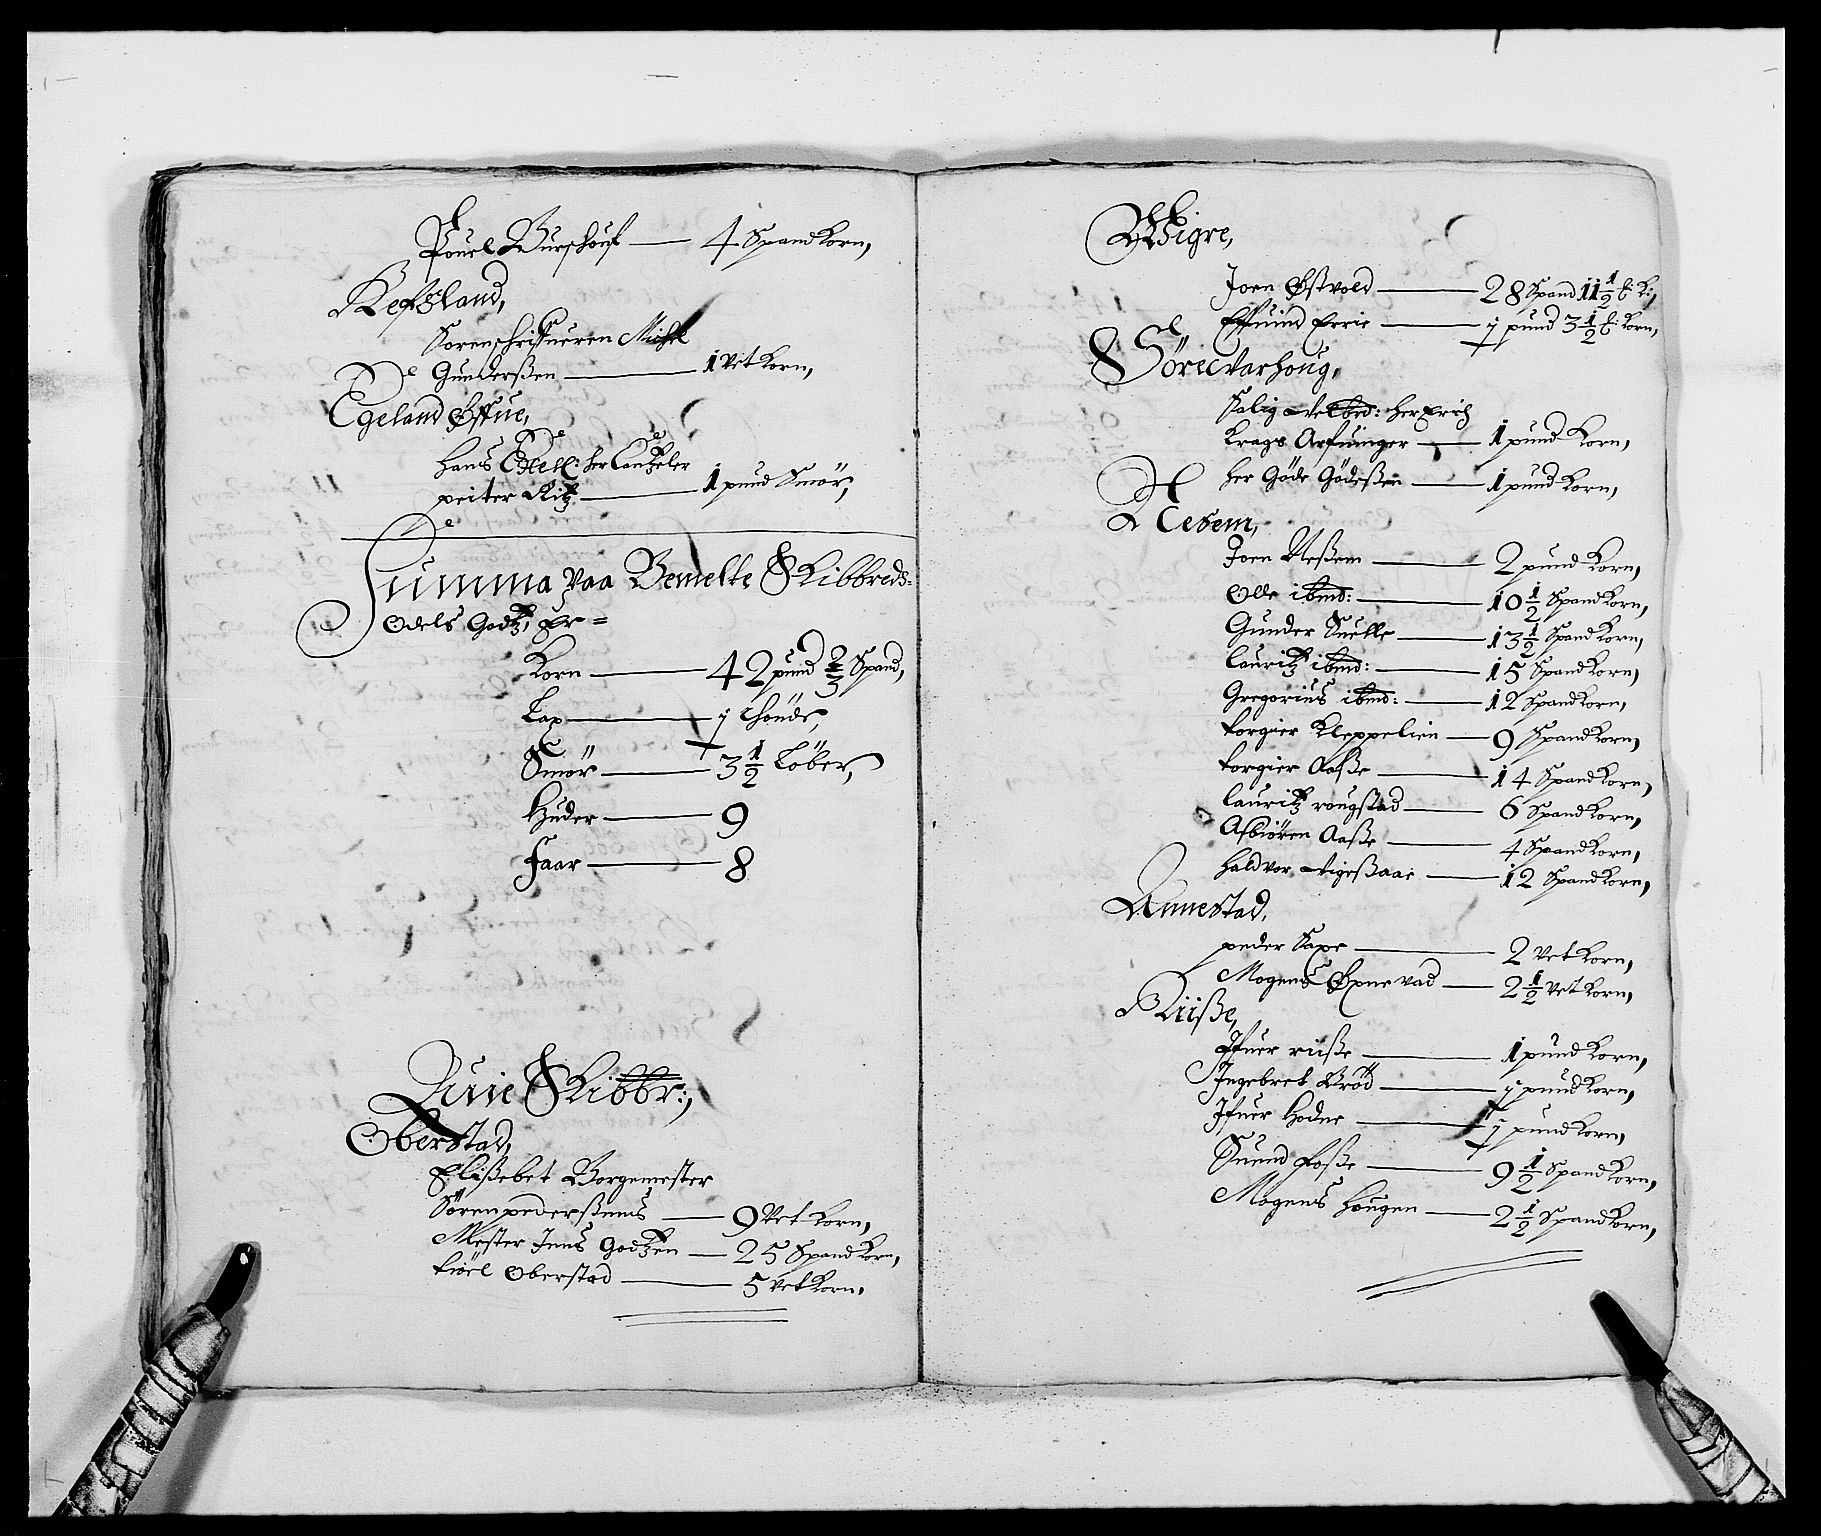 Pouel Burshouf — 4 Spand Korn,
Kefsland,
Sorenschrifueren Michel
Gunderßen — 1 Vet Korn,
Egeland Øffue,
Hans Excell: Her Cantzeler
peiter Ritz — 1 pund Smör,
Summa paa Bemelte Skibbreds=
Odels Godtz, Er =
Korn — 42 pund 2/3 Spand,
Lax — j thönde,
Smör — 3 1/2 Löber,
Huder — 9
Faar — 8
Quie Skibbr:,
Oberstad,
Elißebet Borgemester
Sören pederßens — 9 Vet Korn,
Mester Jens Godtzen — 25 Spand Korn,
Kiöel Oberstad — 5 Vet Korn,
Wigre,
Joen Østvold — 28 Spand 11 1/2 k: K:,
Effuind Errie — j pund 3 1/2 k: Korn,
Söre Varhoug,
Salig Velbrd: Her Erich
Krags Arfuinger — 1 pund Korn,
Her Göde Gödeßen — 1 pund Korn,
Nesem,
Joen Neßem — 2 pund Korn,
Olle ibmd: — 10 1/2 Spand Korn,
Gunder Suelle — 13 1/2 Spand Korn,
Lauritz ibmd: — 15 Spand Korn,
Gregorius ibmd: — 12 Spand Korn,
Torgier Kleppelien — 9 Spand Korn,
Torgier Aaße — 14 Spand Korn,
Lauritz rougstad — 6 Spand Korn,
Asbiören Aaße — 4 Spand Korn,
Haldvor Vigeßaae — 12 Spand Korn,
Annestad,
peder Saxe — 2 Vet Korn,
Mogens Øxnevad — 2 1/2 Vet Korn,
Riiße,
Ifuer riiße — 1 pund Korn,
Ingebret Bröd — j pund Korn,
Ifuer Hodne — j pund Korn,
Suend Foße — 9 1/2 Spand Korn,
Mogens Hougen — 2 1/2 Spand Korn,